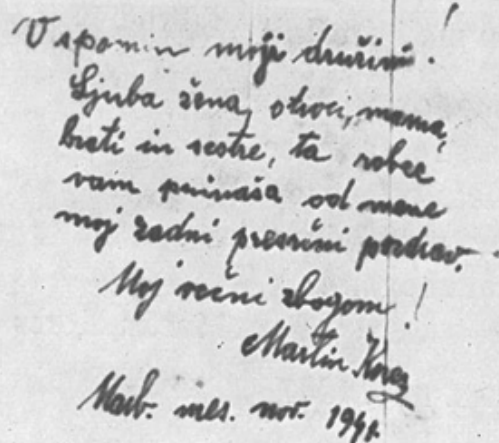 V spomin moji družini!
Ljuba žena, otroci, mama,
brati in sestre, ta robec
vam prinaša od mene
moj zadni presrčni pozdrav.
Moj večni zbogom!
Martin Korez
Marb. mes. nov. 1941.